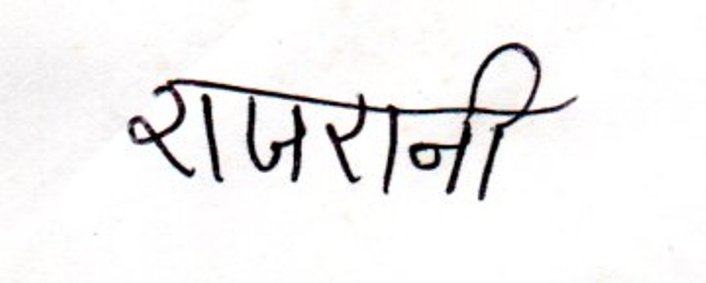 राजरानी